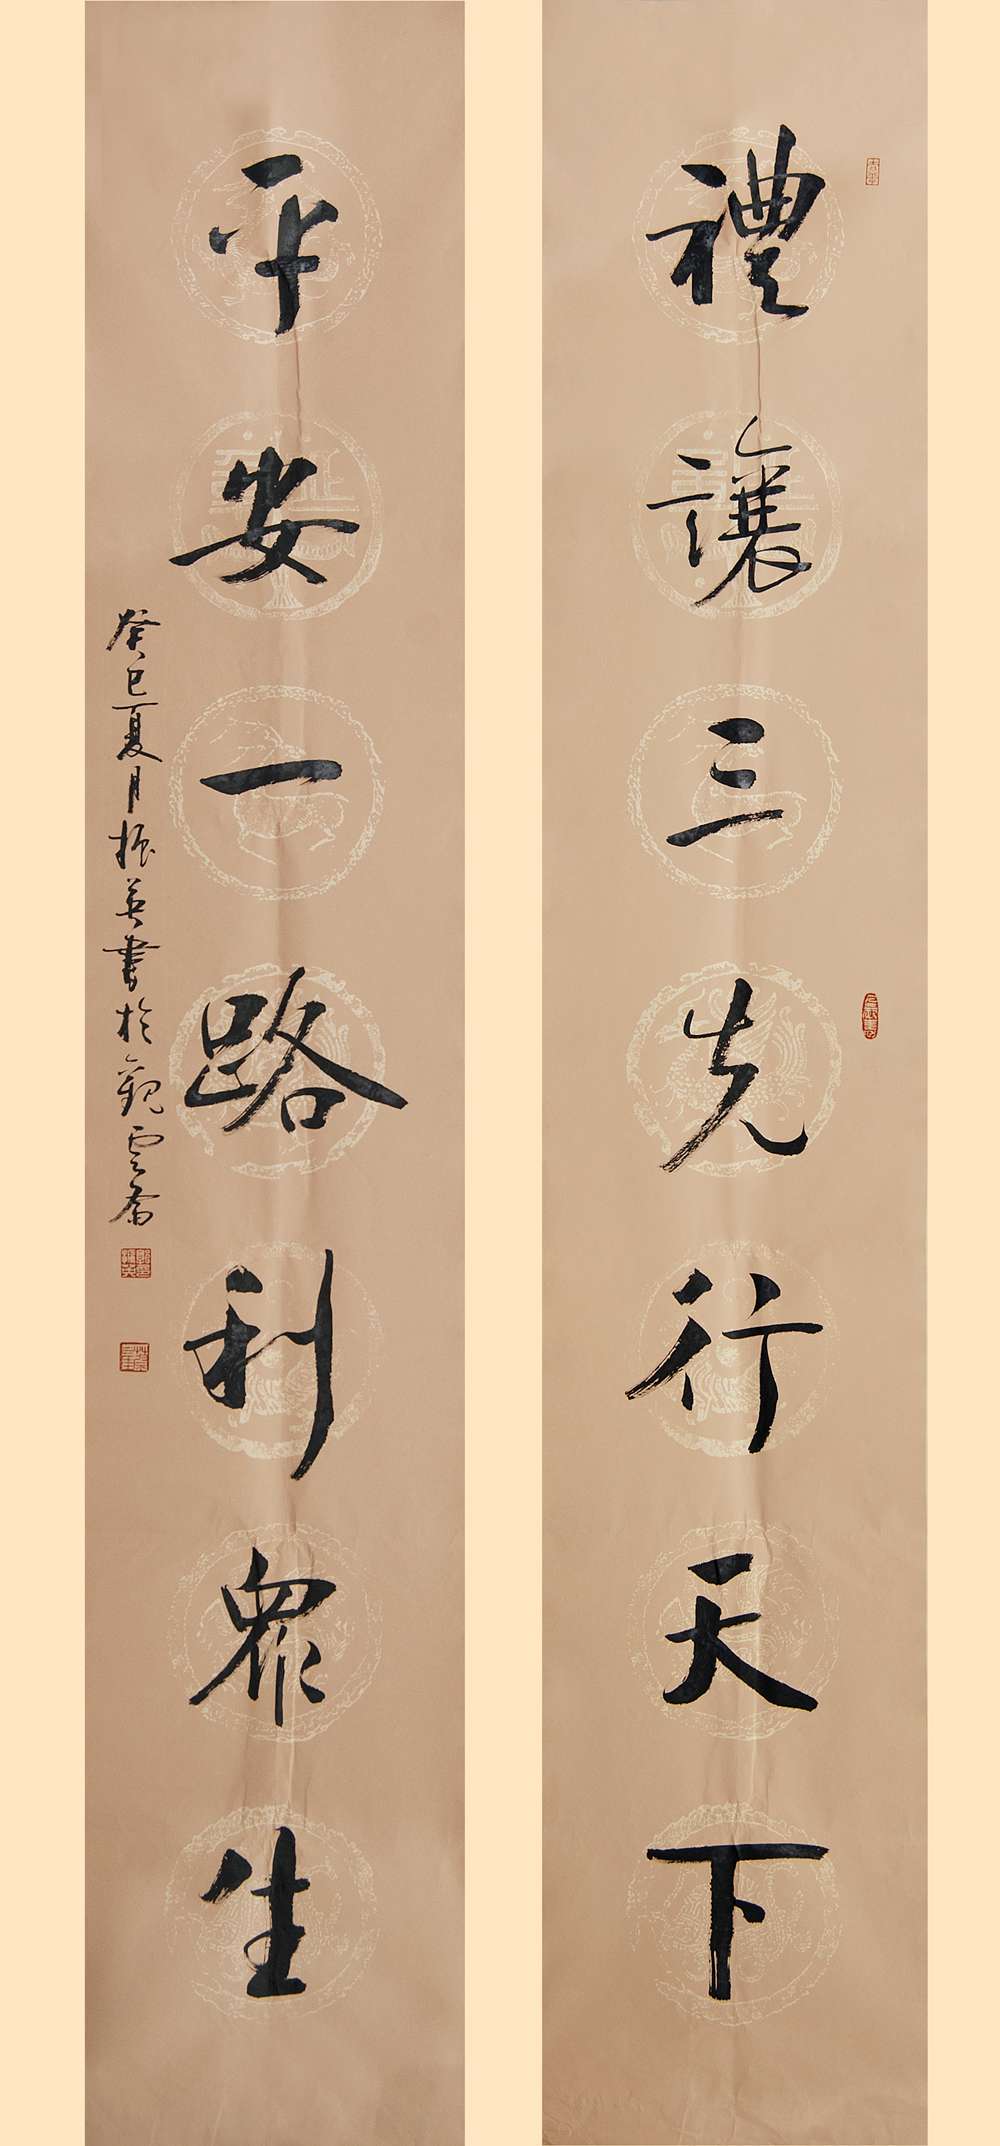 禮讓三先行天下
平安一路利眾生
癸巳夏月振英書於觀雲齋